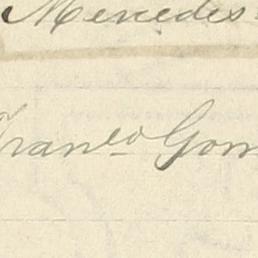 Mercedes
Franco Gom